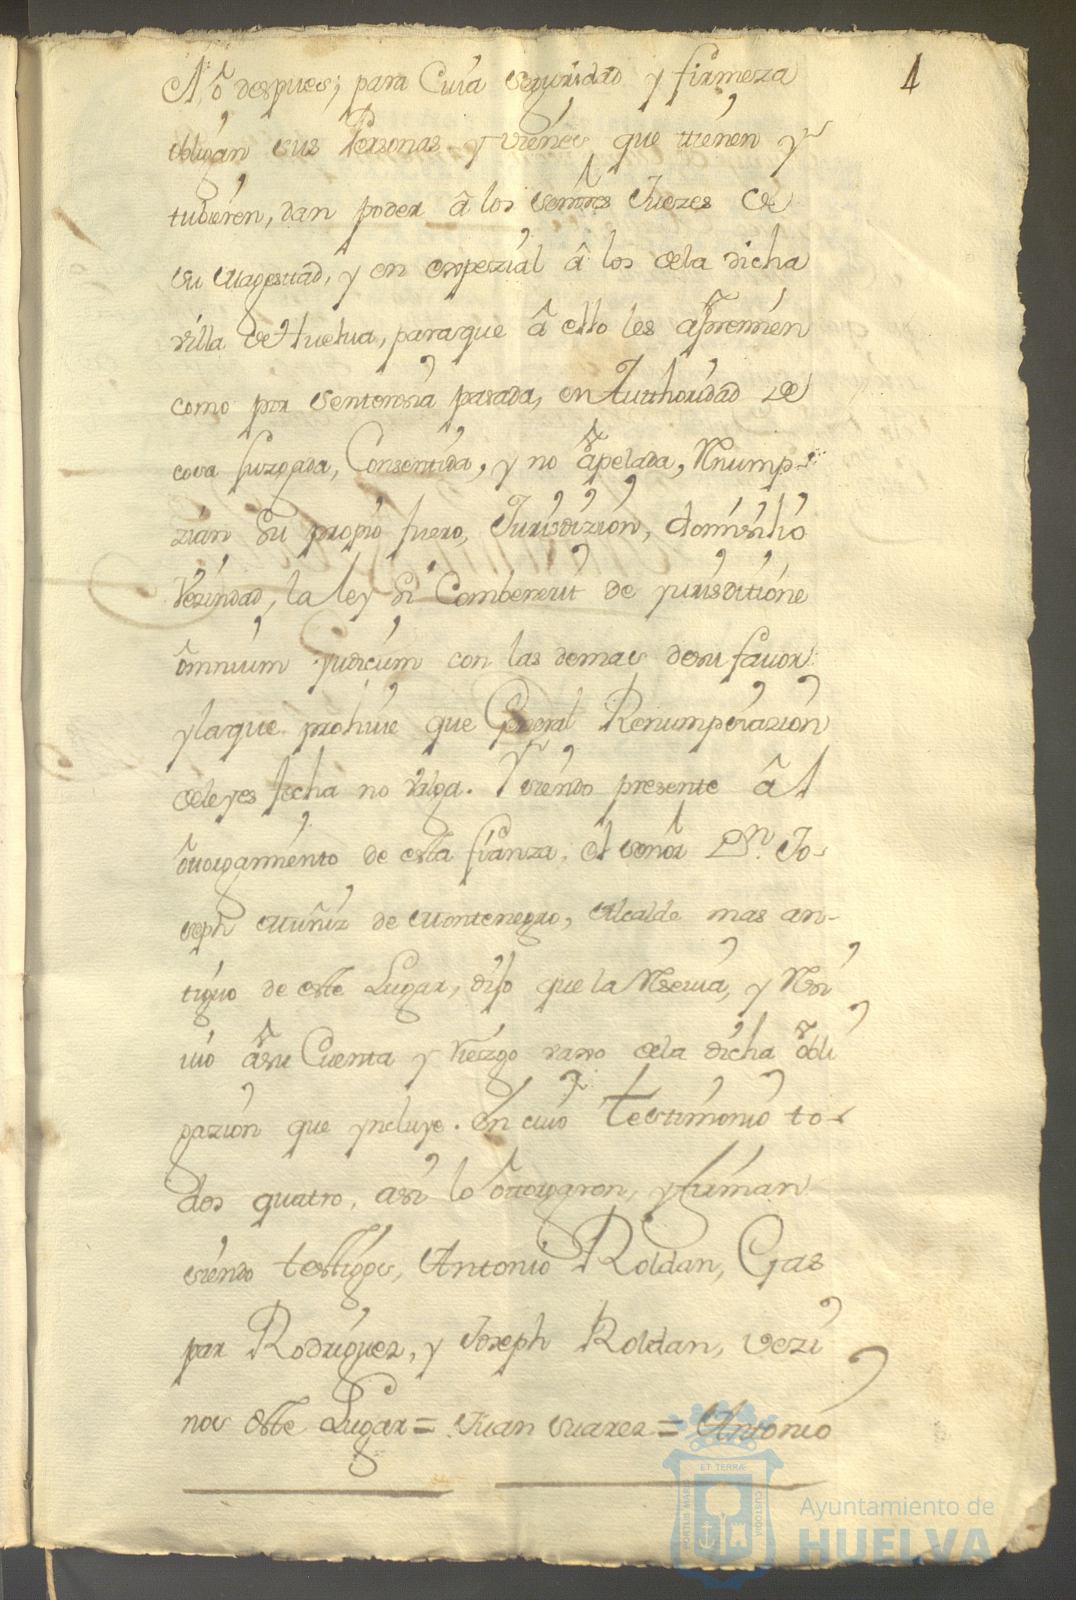 1
Año despues; para Cuia seguridad y firmeza
obligan sus Personas y vienes que tienen y
tubieren, dan poder â los señores Juezes de
su Magestad, y en espezial â los dela dicha
villa de Huelua, paraque â ello les apremien
como por sentenzia pasada, en Authoridad de
cosa Juzgada, Consentida, y no apelada, Renump-
zian su propio fuero, Jurisdizion, domisilio
Vezindad, la ley si Combenerit de yurisditione
omnium yudicum con las demas desu fauor
ylaque prohiue que General Renumpziazion
deleyes fecha no valga. Y siendo presente âl
otorgamiento de esta fianza, el señor Dn. Jo-
seph Muñiz de Montenegro, Alcalde mas an-
tiguo de este Lugar, dijo que la Reseuia, y Resi
uio asu Cuenta y Riezgo vajo dela dicha obli
gazion que yncluye. En cuio Testimonio to-
dos quatro, asi lo otorgaron, y firman
siendo testigos, Antonio Roldan, Gas
par Rodriguez, y Joseph Roldan, vezi
nos deste Lugar = Juan Suarez = Antonio
ET TERRÆ
PORTUS MARIS
CUSTODIA
Ayuntamiento de
HUELVA